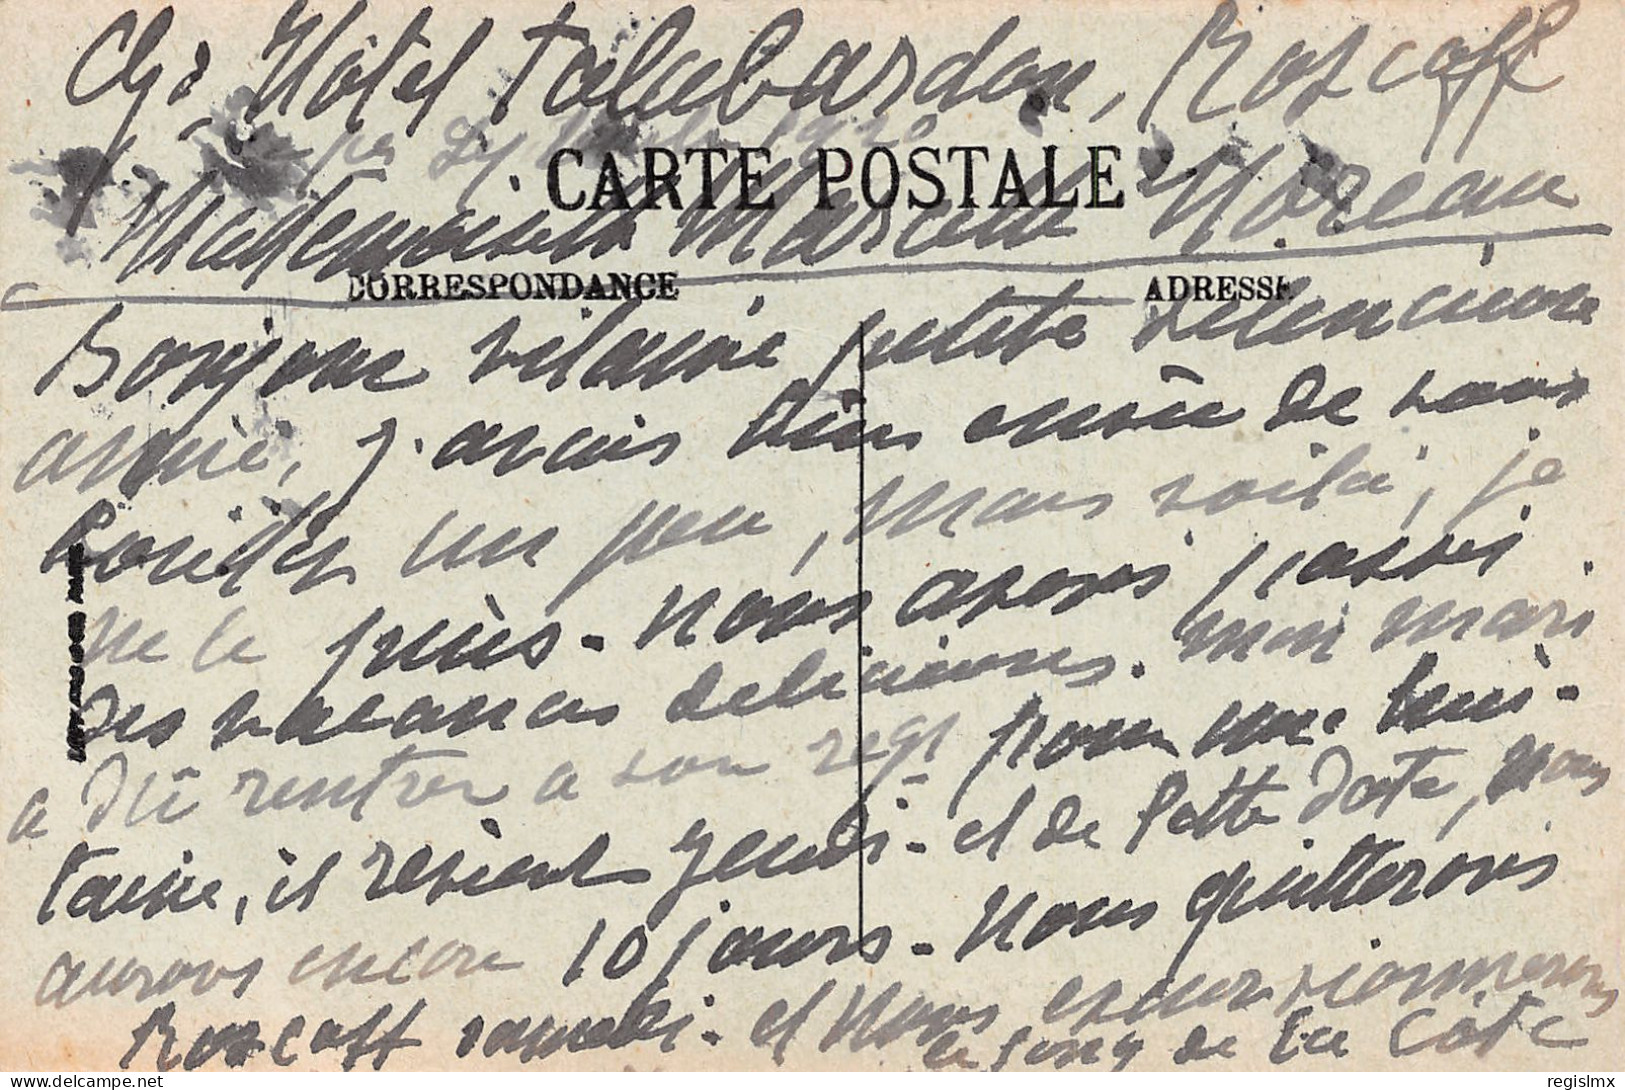 Hôtel Talabardon, Roscoff
CARTE POSTALE
Mademoiselle Marcelle Moreau
CORRESPONDANCE ADRESSE
Bonjour vilaine petite silencieuse
amie, j'avais bien envie de vous
bouder un peu, mais voilà, je
ne le puis - nous avons passé
des vacances délicieuses. mon mari
a dû rentrer a son regt pour une hui-
taine, il revient jeudi - et de cette date, nous
aurons encore 10 jours - nous quitterons
Roscoff samedi - et nous excursionnerons
le long de la Côte
regislmx
delcampe.net